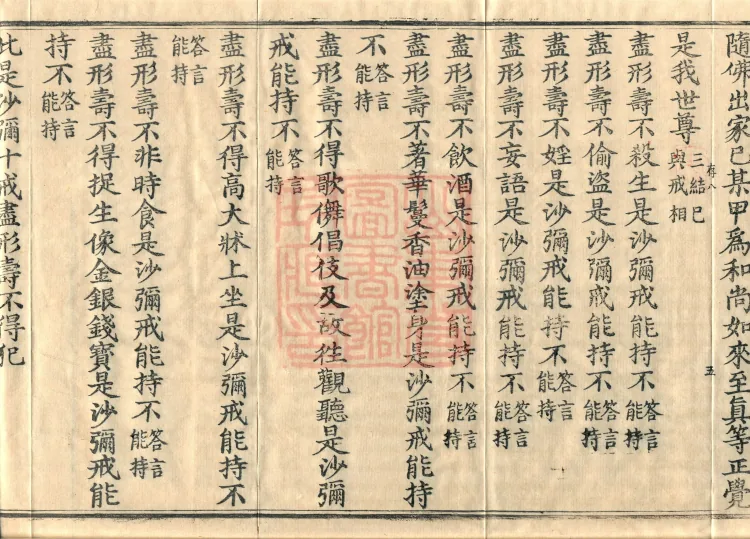 隨佛出家已某甲爲和尚如來至真等正覺
是我世尊三結已與戒相
存八 五
盡形壽不殺生是沙彌戒能持不答言能持
盡形壽不偷盜是沙彌戒能持不答言能持
盡形壽不婬是沙彌戒能持不答言能持
盡形壽不妄語是沙彌戒能持不答言能持
盡形壽不飲酒是沙彌戒能持不答言能持
盡形壽不著華鬘香油塗身是沙彌戒能持
不答言能持
盡形壽不得歌儛倡伎及故往觀聽是沙彌
戒能持不答言能持
盡形壽不得高大牀上坐是沙彌戒能持不
答言能持
盡形壽不非時食是沙彌戒能持不答言能持
盡形壽不得捉生像金銀錢寶是沙彌戒能
持不答言能持
此是沙彌十戒盡形壽不得犯